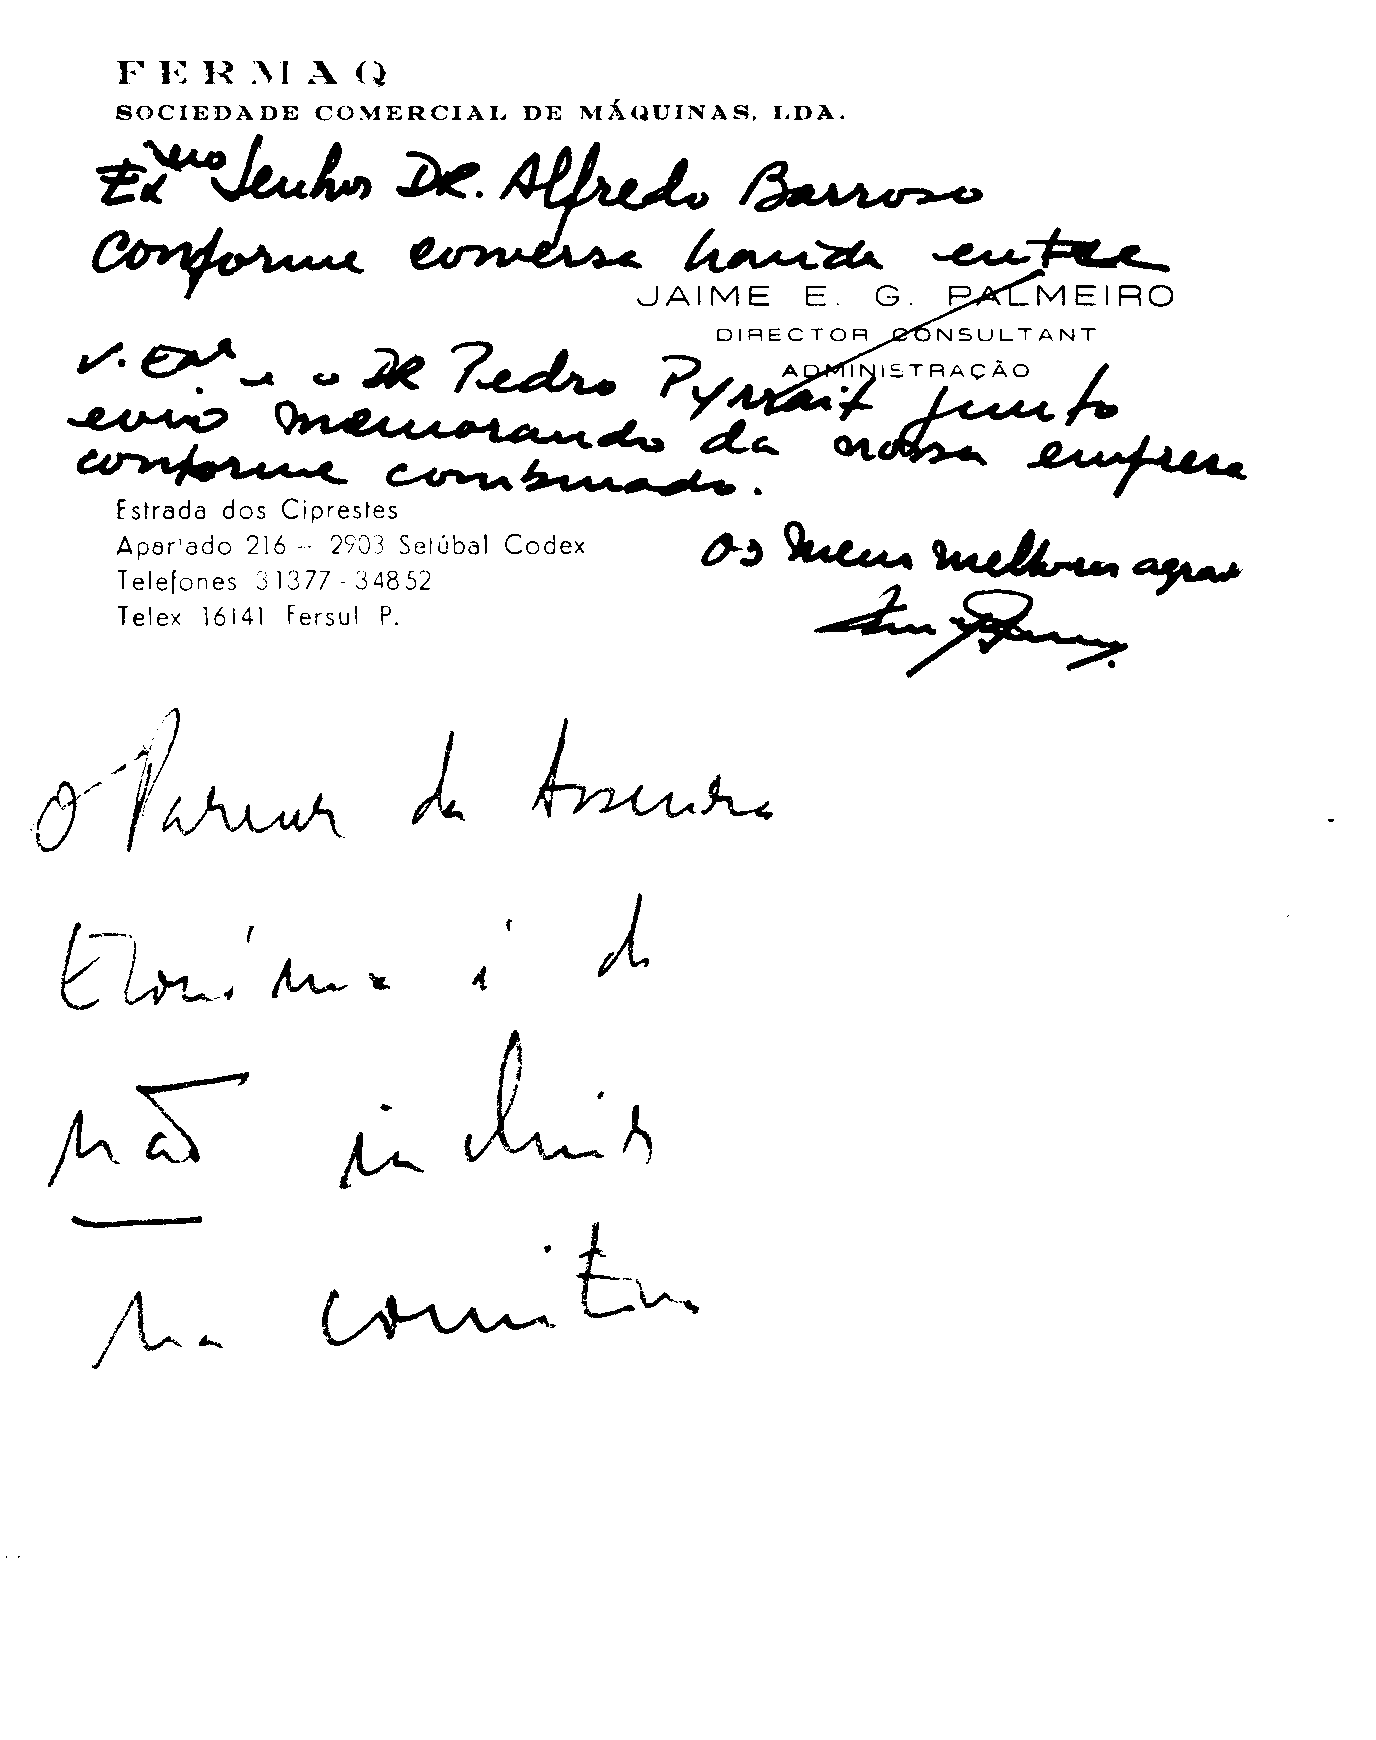 FERMAQ
SOCIEDADE COMERCIAL DE MÁQUINAS, LDA.
Exmo Senhor DR. Alfredo Barroso
Conforme conversa havida entre
JAIME E. G. PALMEIRO
DIRECTOR CONSULTANT
ADMINISTRAÇÃO
V. Exa. e o DR Pedro Pyrrait junto
envio memorando da nossa empresa
conforme combinado.
Estrada dos Ciprestes
Apartado 216 - 2903 Setúbal Codex
Telefones 31377 - 34852
Telex 16141 Fersul P.
Os meus melhores
O Parecer da Assessoria
Económica é de
não incluir
na comitiva